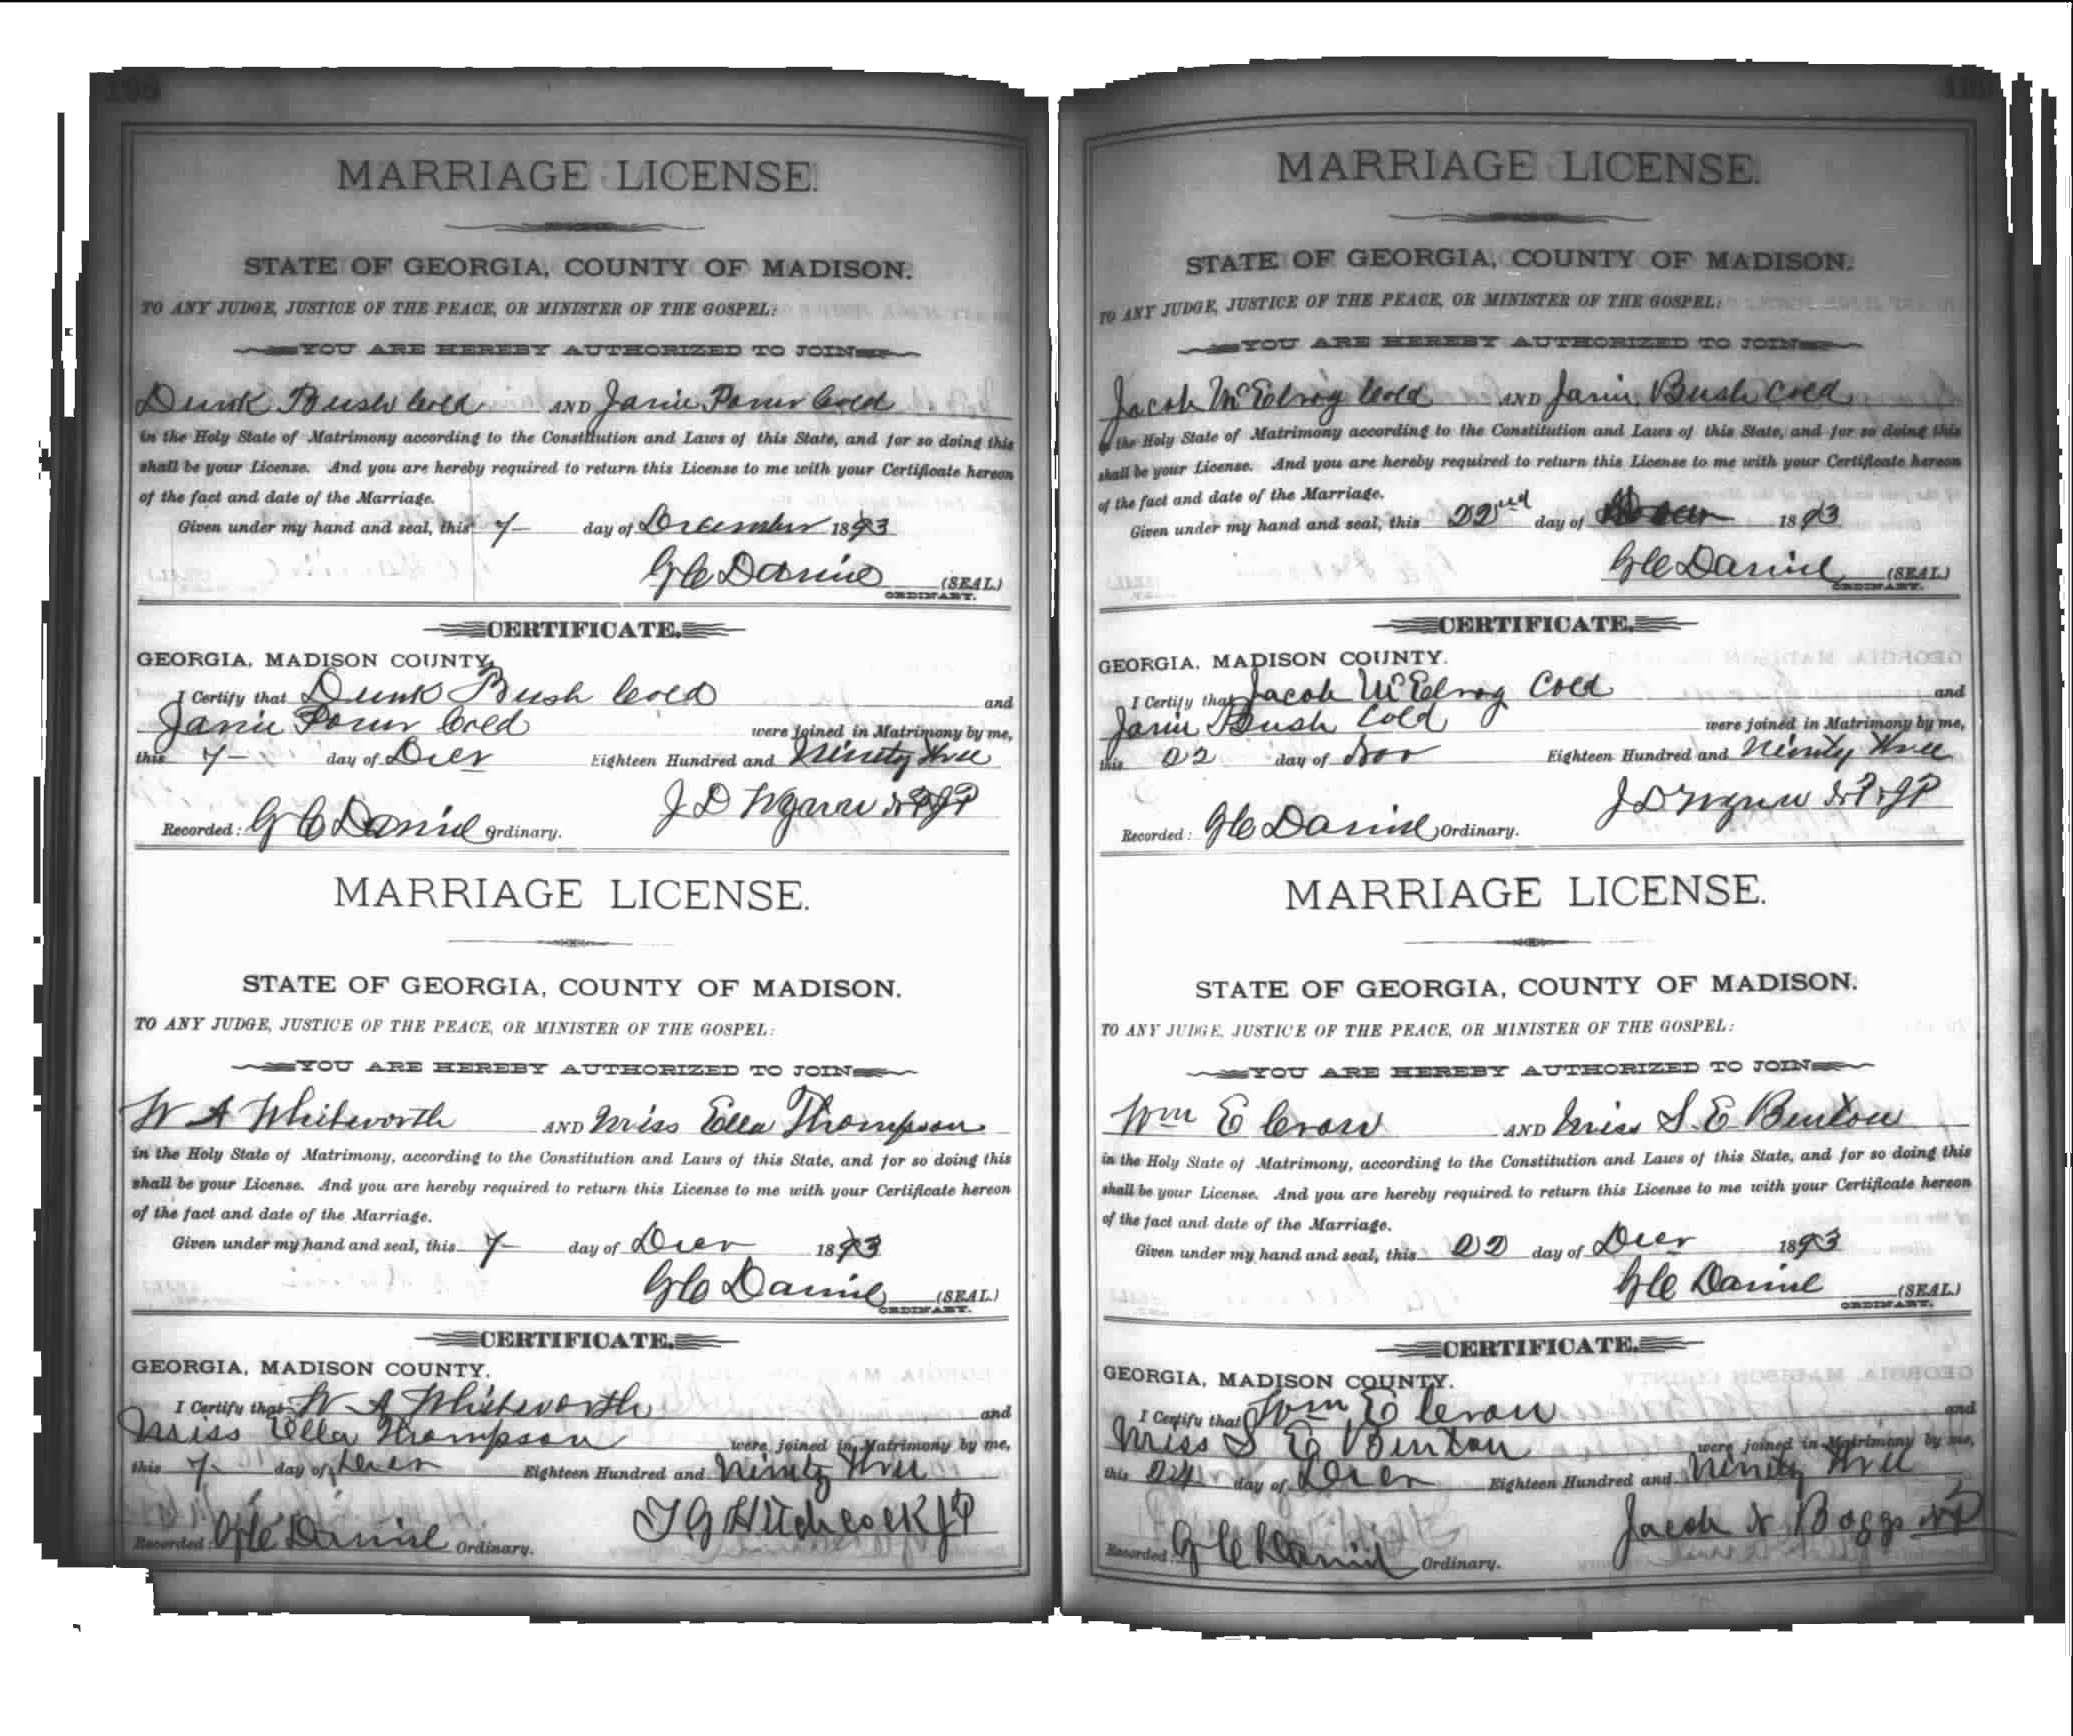 MARRIAGE LICENSE.
STATE OF GEORGIA, COUNTY OF MADISON.
TO ANY JUDGE, JUSTICE OF THE PEACE, OR MINISTER OF THE GOSPEL:
YOU ARE HEREBY AUTHORIZED TO JOIN
Dunk Bush Cold AND Janie Cold
in the Holy State of Matrimony according to the Constitution and Laws of this State, and for so doing this
shall be your License. And you are hereby required to return this License to me with your Certificate hereon
of the fact and date of the Marriage.
Given under my hand and seal, this 7 day of December 1893
G C Daniel (SEAL)
ORDINARY.
CERTIFICATE.
GEORGIA, MADISON COUNTY,
I Certify that Dunk Bush Cold and
Janie Cold were joined in Matrimony by me,
this 7 day of Decr Eighteen Hundred and Ninety three
J D NP & JP
Recorded: G C Daniel Ordinary.
MARRIAGE LICENSE.
STATE OF GEORGIA, COUNTY OF MADISON.
TO ANY JUDGE, JUSTICE OF THE PEACE, OR MINISTER OF THE GOSPEL:
YOU ARE HEREBY AUTHORIZED TO JOIN
W A Whitworth AND Miss Ella Thompson
in the Holy State of Matrimony, according to the Constitution and Laws of this State, and for so doing this
shall be your License. And you are hereby required to return this License to me with your Certificate hereon
of the fact and date of the Marriage.
Given under my hand and seal, this 7 day of Decr 1893
G C Daniel (SEAL)
ORDINARY.
CERTIFICATE.
GEORGIA, MADISON COUNTY.
I Certify that W A Whitworth and
Miss Ella Thompson were joined in Matrimony by me,
this 7 day of Decr Eighteen Hundred and Ninety three
T G Hitchcock JP
Recorded: G C Daniel Ordinary.
MARRIAGE LICENSE.
STATE OF GEORGIA, COUNTY OF MADISON.
TO ANY JUDGE, JUSTICE OF THE PEACE, OR MINISTER OF THE GOSPEL:
YOU ARE HEREBY AUTHORIZED TO JOIN
Jacob McElroy Cold AND Janie Bush Cold
in the Holy State of Matrimony according to the Constitution and Laws of this State, and for so doing this
shall be your License. And you are hereby required to return this License to me with your Certificate hereon
of the fact and date of the Marriage.
Given under my hand and seal, this 22nd day of 1893
G C Daniel (SEAL)
ORDINARY.
CERTIFICATE.
GEORGIA, MADISON COUNTY.
I Certify that Jacob McElroy Cold and
Janie Bush Cold were joined in Matrimony by me,
this 22 day of Eighteen Hundred and Ninety three
J D NP & JP
Recorded: G C Daniel Ordinary.
MARRIAGE LICENSE.
STATE OF GEORGIA, COUNTY OF MADISON.
TO ANY JUDGE, JUSTICE OF THE PEACE, OR MINISTER OF THE GOSPEL:
YOU ARE HEREBY AUTHORIZED TO JOIN
Wm E Crow AND Miss S. E Benton
in the Holy State of Matrimony, according to the Constitution and Laws of this State, and for so doing this
shall be your License. And you are hereby required to return this License to me with your Certificate hereon
of the fact and date of the Marriage.
Given under my hand and seal, this 22 day of Decr 1893
G C Daniel (SEAL)
ORDINARY.
CERTIFICATE.
GEORGIA, MADISON COUNTY.
I Certify that Wm E Crow and
Miss S E Benton were joined in Matrimony by me,
this 24 day of Decr Eighteen Hundred and Ninety three
Jacob Boggs NP
Recorded: G C Daniel Ordinary.